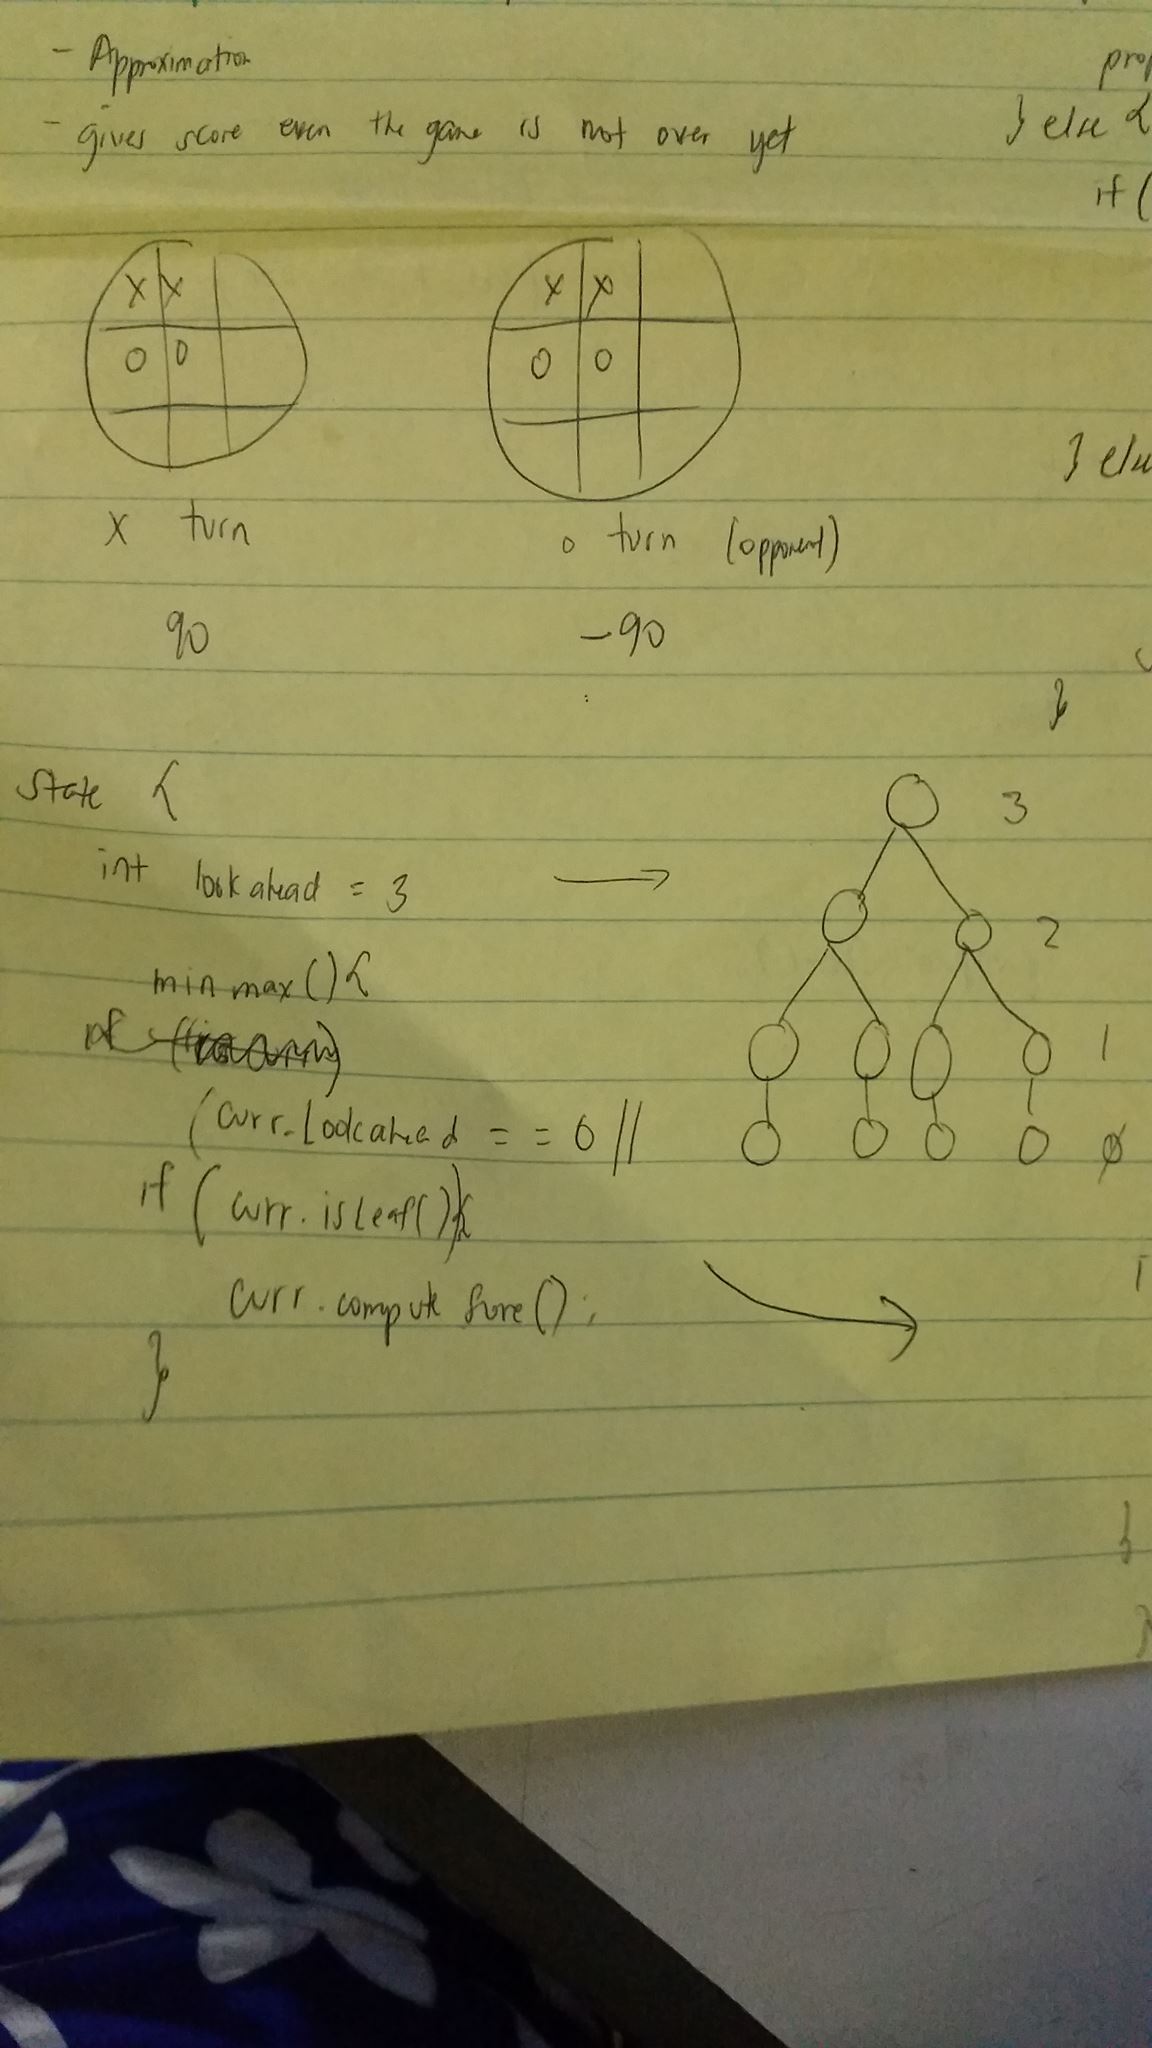 - Approximation
- gives score even the game is not over yet
x x
o o
x turn
90
x x
o o
o turn (opponent)
-90
State {
int lookahead = 3
minmax() {
(curr.Lookahead == 0 ||
if (curr.isLeaf()) {
curr.compute Score();
}
3
2
1
0
} else {
if (
}
}